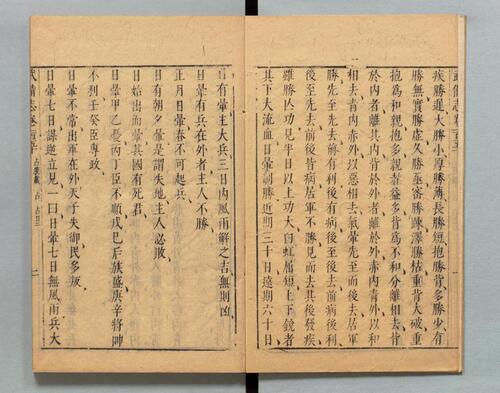 武備志卷一百五十
疾勝遲大勝小厚勝薄長勝短抱勝背多勝少有
勝無實勝虛久勝亟密勝疎澤勝枯重背大破重
抱為和親抱多親者益多背為不和分離相去背
於內者離其內背於外者離於外赤內青外以和
相去青內赤外以惡相去氣暈先至而後去居軍
勝先至先去前有利後有病後至後去前病後利
後至先去前後皆病居軍不勝見而去其後發疾
雖勝亾功見半日以上功大白虹屈短上下銳者
其下大流血日暈制勝近期三十日遠期六十日
日有暈主大兵三日內風雨解之吉無則凶
日暈有兵在外者主人不勝
正月日暈春不可起兵
日有朝夕暈是謂失地主人必敗
日始出而暈其國有死君
日暈甲乙憂丙丁臣不順戊己后族盛庚辛將
不利壬癸臣專政
日暈不常出軍在外天子失御民多叛
日暈七日謀逆立見一曰日暈七日無風雨兵大
武備志卷百五十 占度載 占 占日 二